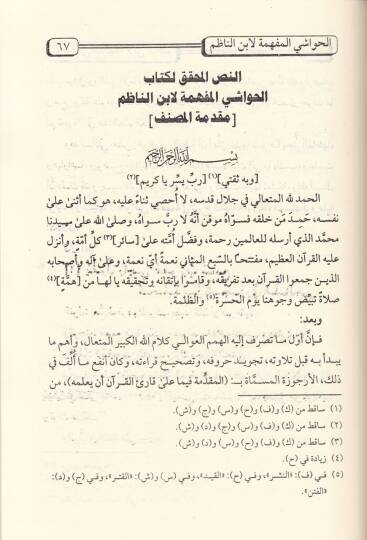 الحواشي المفهمة لابن الناظم
٦٧
النص المحقق لكتاب
الحواشي المفهمة لابن الناظم
[مقدمة المصنف]
بسم الله الرحمن الرحيم
[وبه ثقتي](١) [ربِّ يسر يا كريم](٢)
الحمد لله المتعالي في جلال قدسه، لا أُحصي ثناءً عليه، هو كما أثنى على
نفسه، حَمِدَ مَن خلقه فسوّاه موقن أنَّه لا ربَّ سواه، وصلى الله على سيدنا
محمَّد الذي أرسله للعالمين رحمة، وفضَّل أمَّته على [سائر](٣) كلِّ أمّة، وأنزل
عليه القرآن العظيم، مفتتحاً بالسبع المثاني نعمةً أيّ نعمةٍ، وعلى آله وأصحابه
الذين جمعوا القرآن بعد تفريقه، وقاموا بإتقانه وتحقيقه يا لها من [همّةٍ](٤)
صلاةً تبيّض وجوهنا يوم الحسرة(٥) والظلمة.
وبعد:
فإنَّ أوّل ما تصرف إليه الهمم العوالي كلام الله الكبير المتعال، وأهم ما
يبدأ به قبل تلاوته، تجويد حروفه، وتصحيح قراءته، وكان أنفع ما أُلِّفَ في
ذلك، الأرجوزة المسمَّاة بـ: (المقدّمة فيما على قارئ القرآن أن يعلمه)، من
(١) ساقط من (ك) و(ف) و(ح) و(س) و(ج) و(ش).
(٢) ساقط من (ك) و(ف) و(ج) و(د) و(ش).
(٣) ساقط من (ك) و(ف) و(ح) و(س) و(د) و(ش).
(٤) زيادة في (ح).
(٥) في (ف): «النشر»، وفي (ح): «القيد»، وفي (س) و(ش): «القتر»، وفي (ج) و(د):
«الفتن».